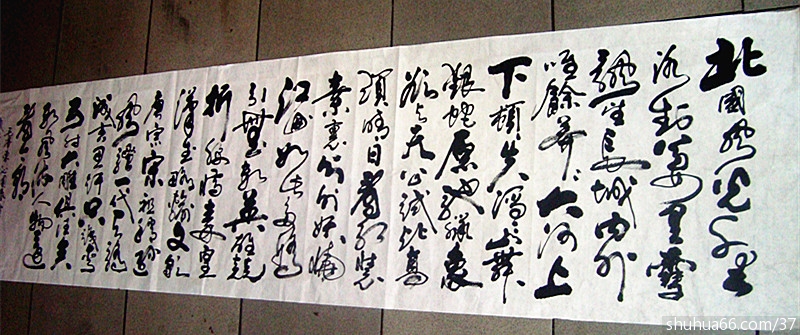 北國風光千里
冰封萬里雪
飄望長城內外
惟餘莽〻大河上
下頓失滔〻山舞
銀蛇原馳蠟象
欲與天公試比高
須晴日看紅裝
素裹分外妖嬈
江山如此多嬌
引無數英雄競
折腰惜秦皇
漢武略輸文彩
唐宗宋祖稍遜
風騷一代天驕
成吉思汗只識彎
弓射大雕俱往矣
數風流人物還
看今朝
shuhua66.com/37